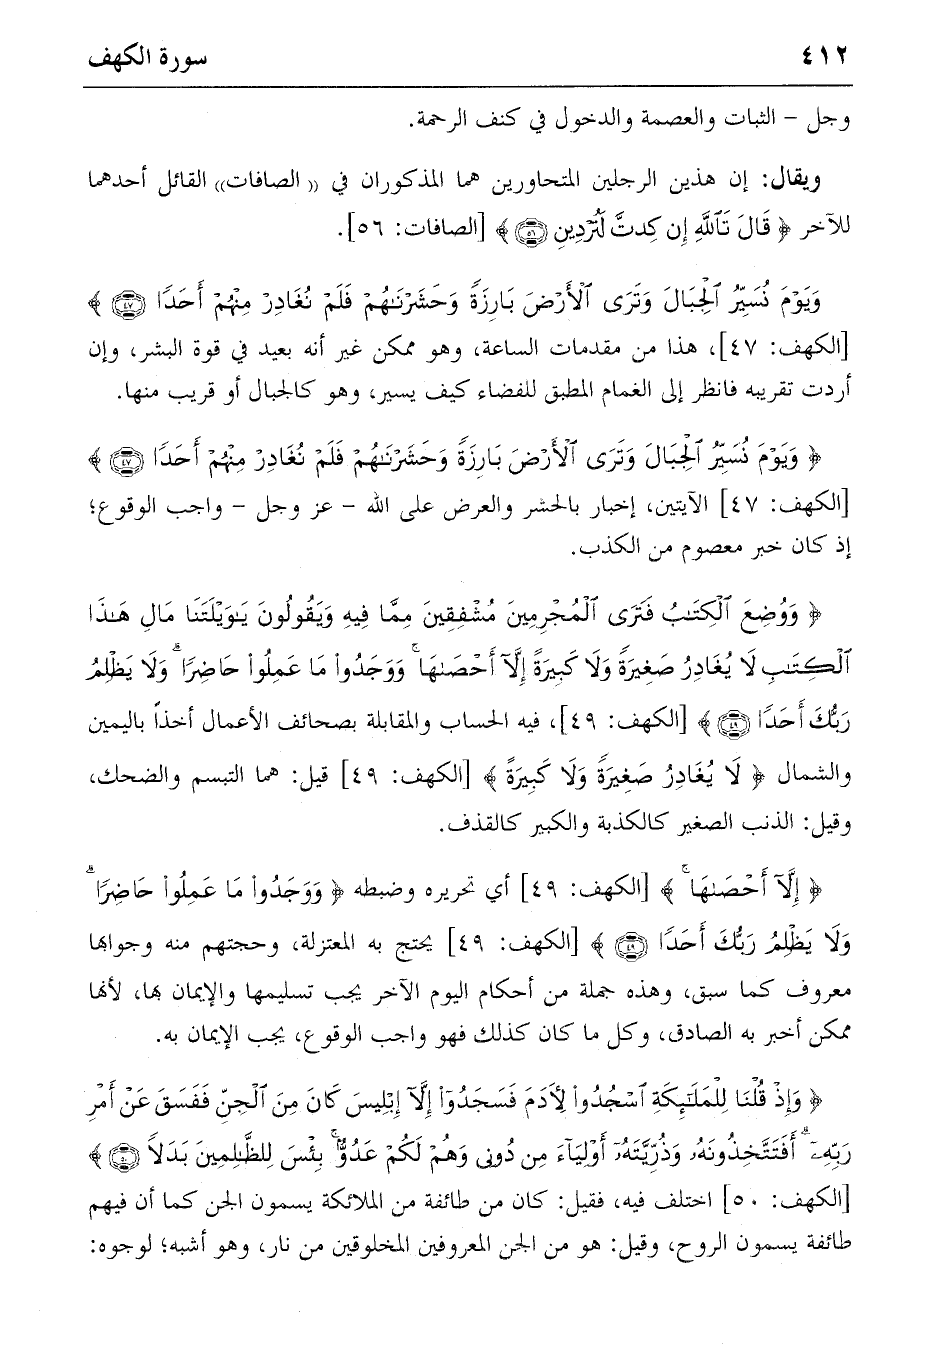 ٤١٢ سورة الكهف
وجل – الثبات والعصمة والدخول في كنف الرحمة.
ويقال: إن هذين الرجلين المتحاورين هما المذكوران في «الصافات» القائل أحدهما
للآخر ﴿ قَالَ تَٱللَّهِ إِن كِدتَّ لَتُرْدِينِ ۝٥٦ ﴾ [الصافات: ٥٦].
وَيَوْمَ نُسَيِّرُ ٱلْجِبَالَ وَتَرَى ٱلْأَرْضَ بَارِزَةً وَحَشَرْنَـٰهُمْ فَلَمْ نُغَادِرْ مِنْهُمْ أَحَدًا ۝٤٧ ﴾
[الكهف: ٤٧]، هذا من مقدمات الساعة، وهو ممكن غير أنه بعيد في قوة البشر، وإن
أردت تقريبه فانظر إلى الغمام المطبق للفضاء كيف يسير، وهو كالجبال أو قريب منها.
﴿ وَيَوْمَ نُسَيِّرُ ٱلْجِبَالَ وَتَرَى ٱلْأَرْضَ بَارِزَةً وَحَشَرْنَـٰهُمْ فَلَمْ نُغَادِرْ مِنْهُمْ أَحَدًا ۝٤٧ ﴾
[الكهف: ٤٧] الآيتين، إخبار بالحشر والعرض على الله – عز وجل – واجب الوقوع؛
إذ كان خبر معصوم من الكذب.
﴿ وَوُضِعَ ٱلْكِتَـٰبُ فَتَرَى ٱلْمُجْرِمِينَ مُشْفِقِينَ مِمَّا فِيهِ وَيَقُولُونَ يَـٰوَيْلَتَنَا مَالِ هَـٰذَا
ٱلْكِتَـٰبِ لَا يُغَادِرُ صَغِيرَةً وَلَا كَبِيرَةً إِلَّآ أَحْصَىٰهَا ۚ وَوَجَدُوا۟ مَا عَمِلُوا۟ حَاضِرًا ۗ وَلَا يَظْلِمُ
رَبُّكَ أَحَدًا ۝٤٩ ﴾ [الكهف: ٤٩]، فيه الحساب والمقابلة بصحائف الأعمال أخذاً باليمين
والشمال ﴿ لَا يُغَادِرُ صَغِيرَةً وَلَا كَبِيرَةً ﴾ [الكهف: ٤٩] قيل: هما التبسم والضحك،
وقيل: الذنب الصغير كالكذبة والكبير كالقذف.
﴿ إِلَّآ أَحْصَىٰهَا ۚ ﴾ [الكهف: ٤٩] أي تحريره وضبطه ﴿ وَوَجَدُوا۟ مَا عَمِلُوا۟ حَاضِرًا ۗ
وَلَا يَظْلِمُ رَبُّكَ أَحَدًا ۝٤٩ ﴾ [الكهف: ٤٩] يحتج به المعتزلة، وحجتهم منه وجوابها
معروف كما سبق، وهذه جملة من أحكام اليوم الآخر يجب تسليمها والإيمان بها، لأنها
ممكن أخبر به الصادق، وكل ما كان كذلك فهو واجب الوقوع، يجب الإيمان به.
﴿ وَإِذْ قُلْنَا لِلْمَلَـٰٓئِكَةِ ٱسْجُدُوا۟ لِـَٔادَمَ فَسَجَدُوٓا۟ إِلَّآ إِبْلِيسَ كَانَ مِنَ ٱلْجِنِّ فَفَسَقَ عَنْ أَمْرِ
رَبِّهِۦٓ ۗ أَفَتَتَّخِذُونَهُۥ وَذُرِّيَّتَهُۥٓ أَوْلِيَآءَ مِن دُونِى وَهُمْ لَكُمْ عَدُوٌّۢ ۚ بِئْسَ لِلظَّـٰلِمِينَ بَدَلًا ۝٥٠ ﴾
[الكهف: ٥٠] اختلف فيه، فقيل: كان من طائفة من الملائكة يسمون الجن كما أن فيهم
طائفة يسمون الروح، وقيل: هو من الجن المعروفين المخلوقين من نار، وهو أشبه؛ لوجوه: